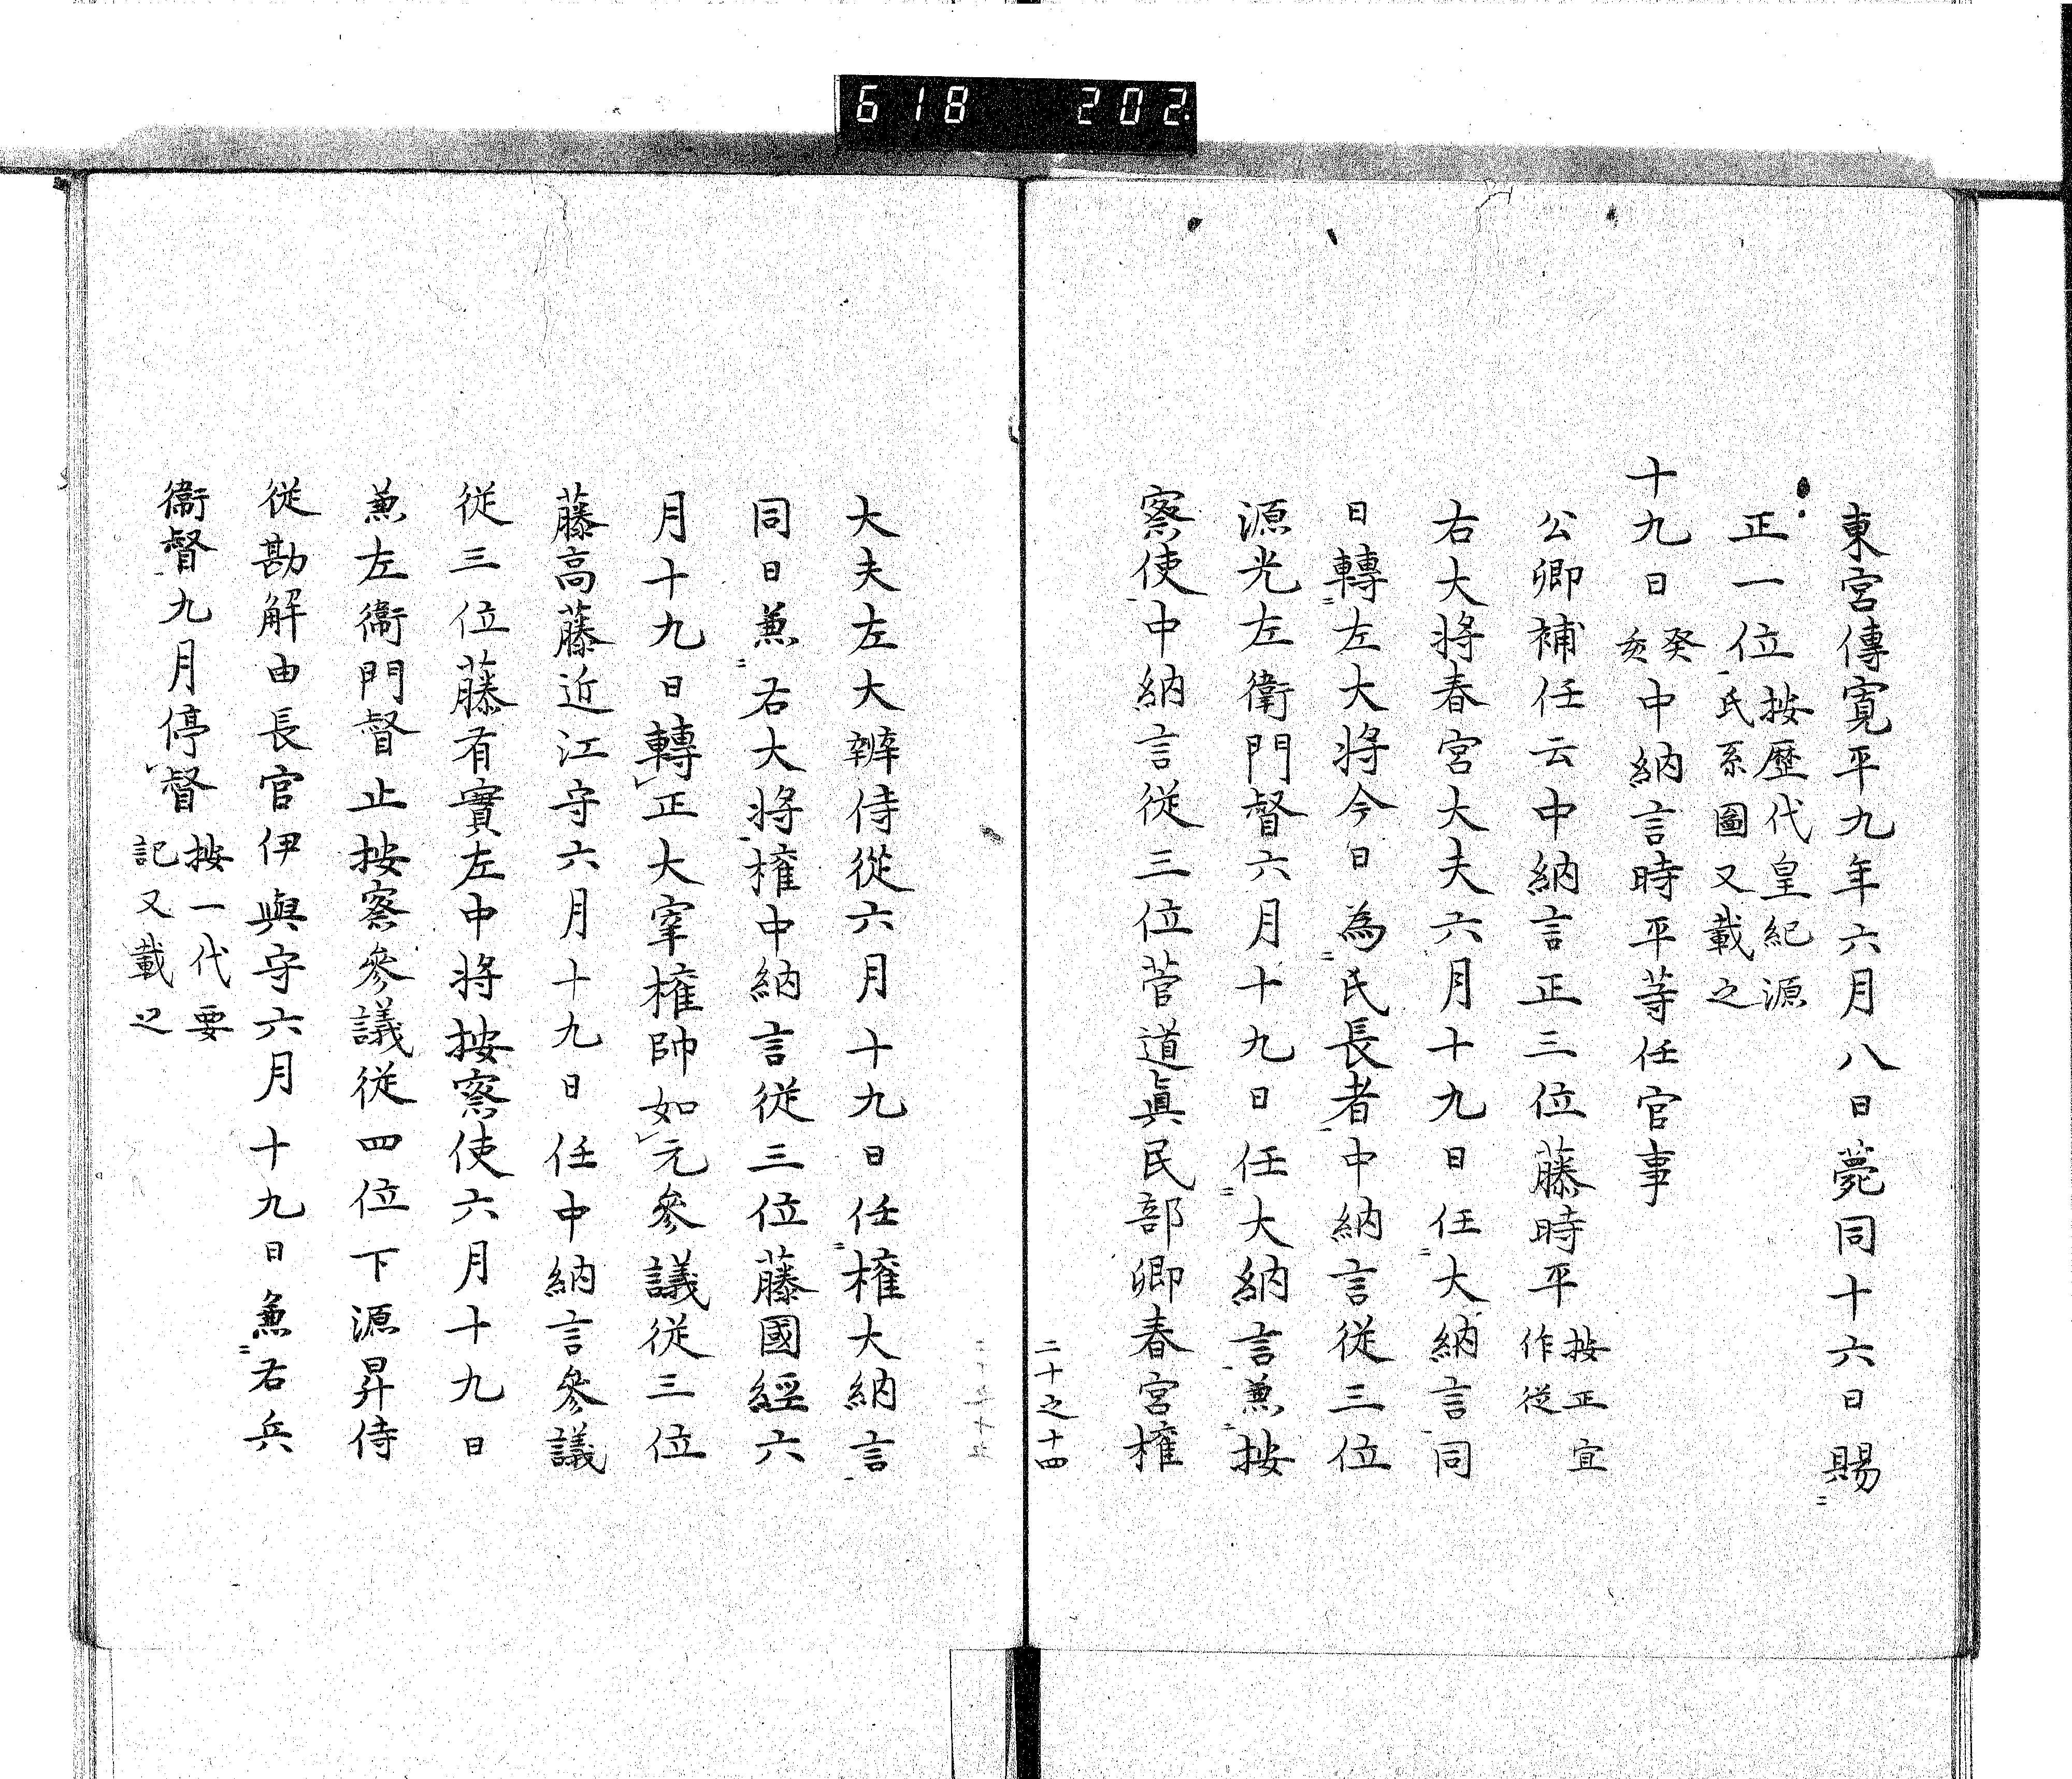 618 202
東宮傳寛平九年六月八日薨同十六日賜
正一位按歴代皇紀源
氏系圖又載之
十九日癸亥中納言時平等任官事
公卿補任云中納言正三位藤時平按正宜
作從
右大将春宮大夫六月十九日任大納言同
日轉左大将今日為氏長者中納言從三位
源光左衛門督六月十九日任大納言兼按
察使中納言從三位菅道眞民部卿春宮權
二十之十四
大夫左大辨侍從六月十九日任權大納言
同日兼右大将權中納言從三位藤國經六
月十九日轉正大宰權帥如元參議從三位
藤高藤近江守六月十九日任中納言參議
從三位藤有實左中将按察使六月十九日
兼左衛門督止按察參議從四位下源昇侍
從勘解由長官伊與守六月十九日兼右兵
衞督九月停督按一代要
記又載之